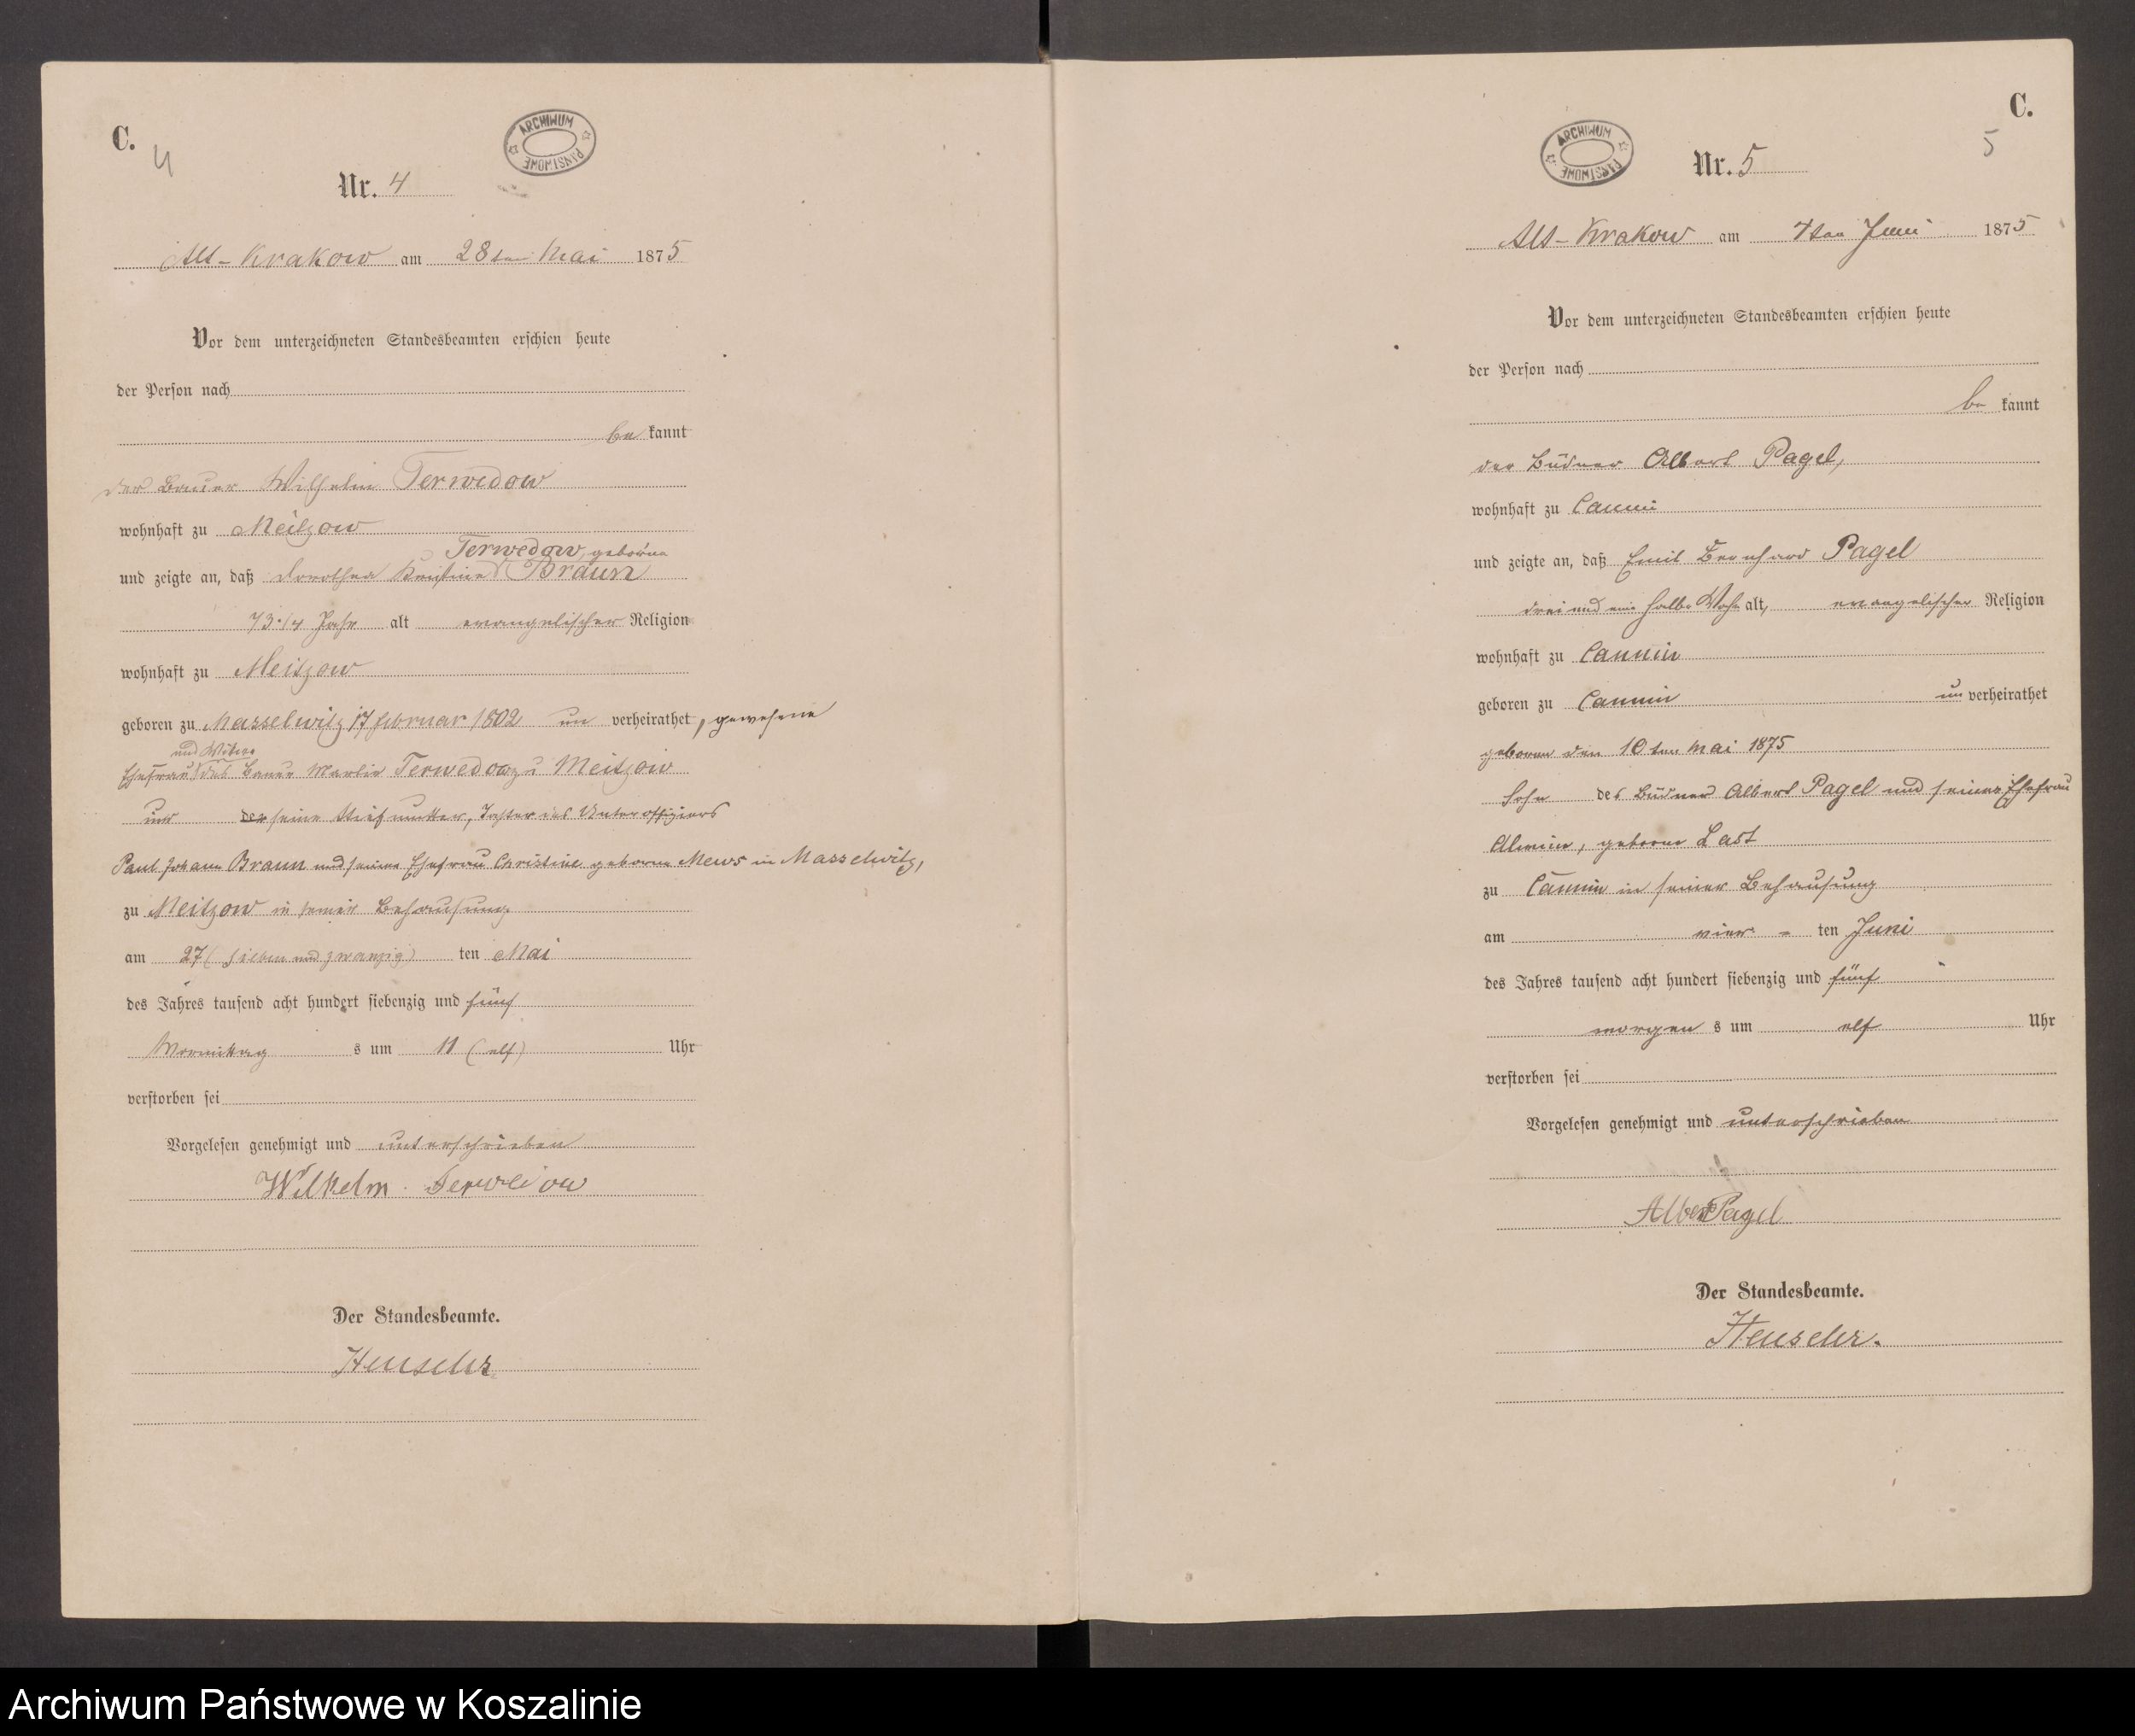 C.
4
ARCHIWUM PAŃSTWOWE
Nr. 4
Alt-Krakow am 28ten Mai 1875
Vor dem unterzeichneten Standesbeamten erschien heute
der Person nach
be kannt
der Bauer Wilhelm Terwedow
wohnhaft zu Meitzow
Terwedow, geborne
und zeigte an, daß Dorothea Kristine Braun
73 1/4 Jahr alt evangelischer Religion
wohnhaft zu Meitzow
geboren zu Masselwitz 17 februar 1802 un verheirathet, gewesene
und Witwe
Ehefrau des Bauer Martin Terwedow zu Meitzow
der seine Stiefmutter, Tochter des Unteroffiziers
Paul Johann Braun und seiner Ehefrau Christine geborne Mews in Masselwitz,
zu Meitzow in seiner Behausung
am 27 (sieben und zwanzig) ten Mai
des Jahres tausend acht hundert siebenzig und fünf
Vormittag s um 11 (elf) Uhr
verstorben sei
Vorgelesen genehmigt und unterschrieben
Wilhelm Terwedow
Der Standesbeamte.
C.
5
ARCHIWUM PAŃSTWOWE
Nr. 5
Alt-Krakow am 4ten Juni 1875
Vor dem unterzeichneten Standesbeamten erschien heute
der Person nach
be kannt
der Büdner Albert Pagel,
wohnhaft zu Cannin
und zeigte an, daß Emil Bernhard Pagel
drei und eine halbe Woche alt, evangelischer Religion
wohnhaft zu Cannin
geboren zu Cannin un verheirathet
geboren den 10ten Mai 1875
Sohn des Büdner Albert Pagel und seiner Ehefrau
geborne Last
zu Cannin in seiner Behausung
am vier - ten Juni
des Jahres tausend acht hundert siebenzig und fünf
morgen s um elf Uhr
verstorben sei
Vorgelesen genehmigt und unterschrieben
Albert Pagel
Der Standesbeamte.
Archiwum Państwowe w Koszalinie